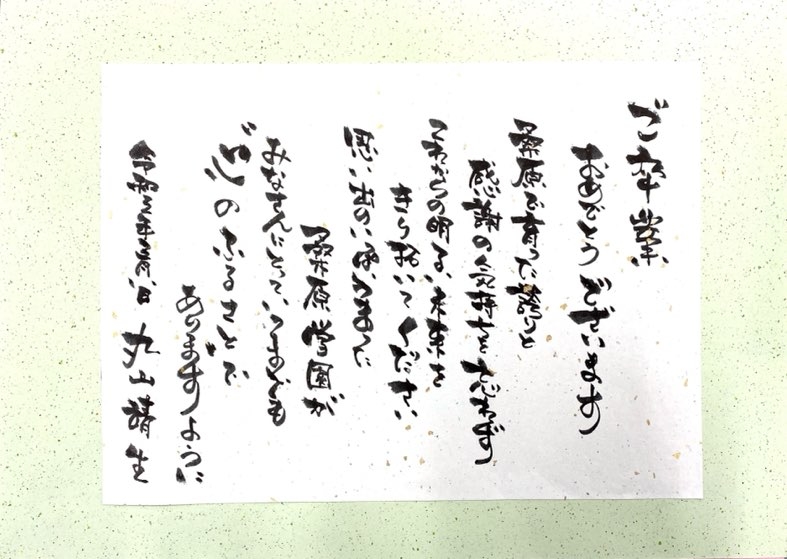 ご卒業
おめでとうございます
桑原で育った誇りと
感謝の気持ちを忘れず
これからの明るい未来を
きり拓いてください
思い出のいっぱいつまった
桑原学園が
みなさんにとっていつまでも
“心のふるさと”で
ありますように
令和 丸山 生